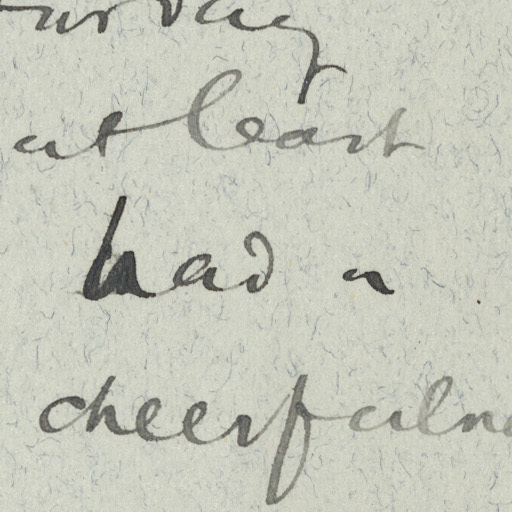 at least
had a
cheerfulne